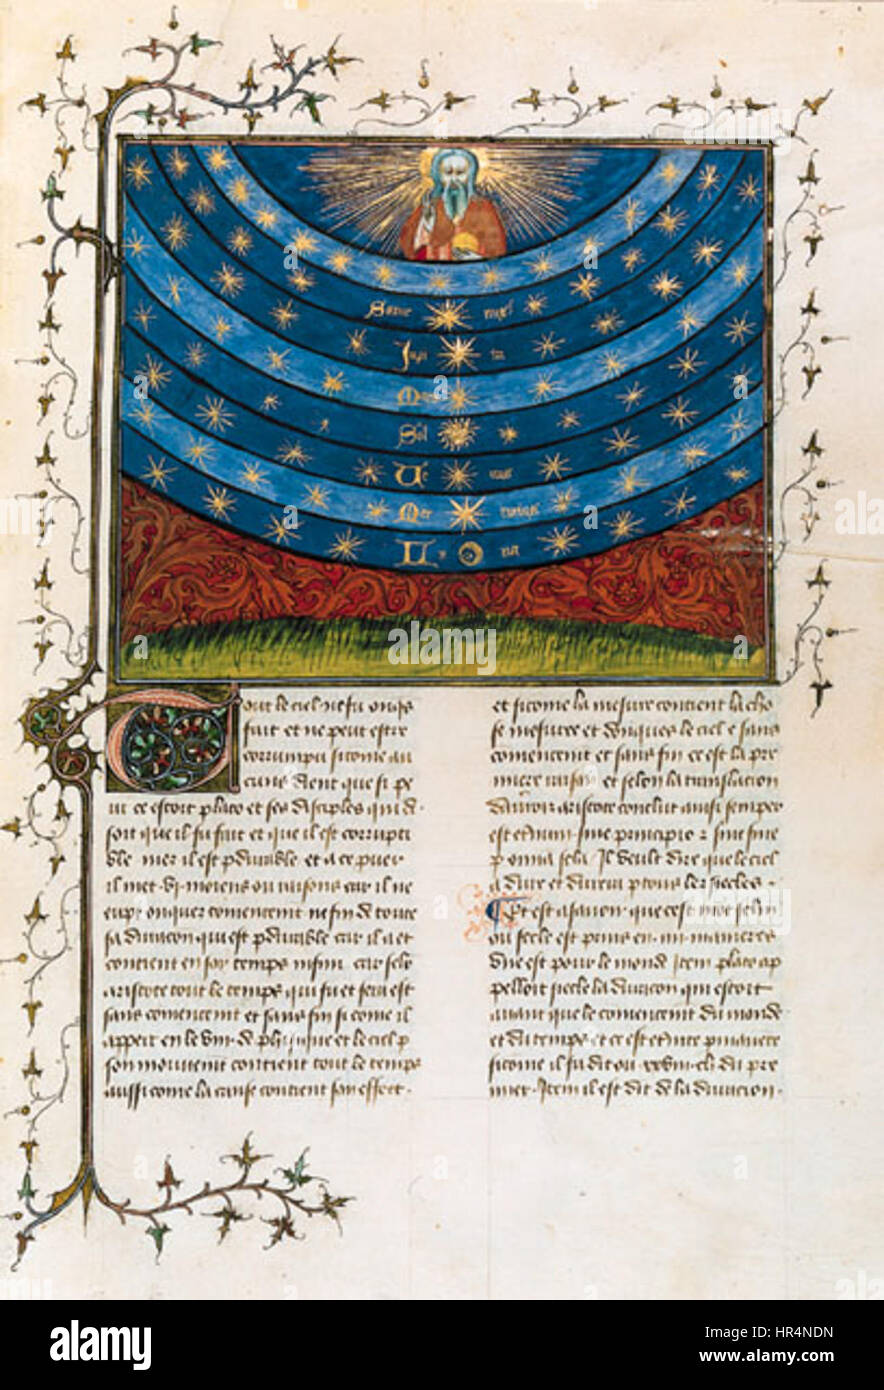 Satur nus
Jupi ter
Mars
Sol
Ve nus
Mer curius
Lu na
Tout le ciel ne fu onques
fait et ne peut estre
corrumpu sicome au
cuns dient que si fe
ist plato et ses disciples qui di
soit que il fu fait et que il est corrupti
ble mez il est pdurable et a ce puer
il met .vi. moiens ou raisons car il ne
eut onques comencemt ne fin de toute
sa duracion qui est pdurable car il a et
contient en soy temps infini car selon
aristote tout le temps qui fu et sera est
sans comencemt et sans fin si come il
appert en le viii. de phisique et le ciel p
son mouvemt contient tout le temps
aussi come la cause contient son effect.
et sicome la mesure contient la cho
se mesuree et donques le ciel e sans
comencemt et sans fin ce est la pre
miere raison et selon la translacion
aristote conclut ainsi semper
est et non sine principio sine fine
p omnia sela. Il veult dire que le ciel
a dure et durera p tous les siecles.
Et est assavoir que cest mot selin
ou secle est prins en .iii. manieres
une est pour le monde Item plato ap
pelloit siecle la duracion qui estoit
avant que le comencemt du monde
et du temps et ce est
sicome il fu dit ou ch. du pre
mier. Item il est dit de la duracion.
alamy
alamy stock photo
HR4NDN
www.alamy.com